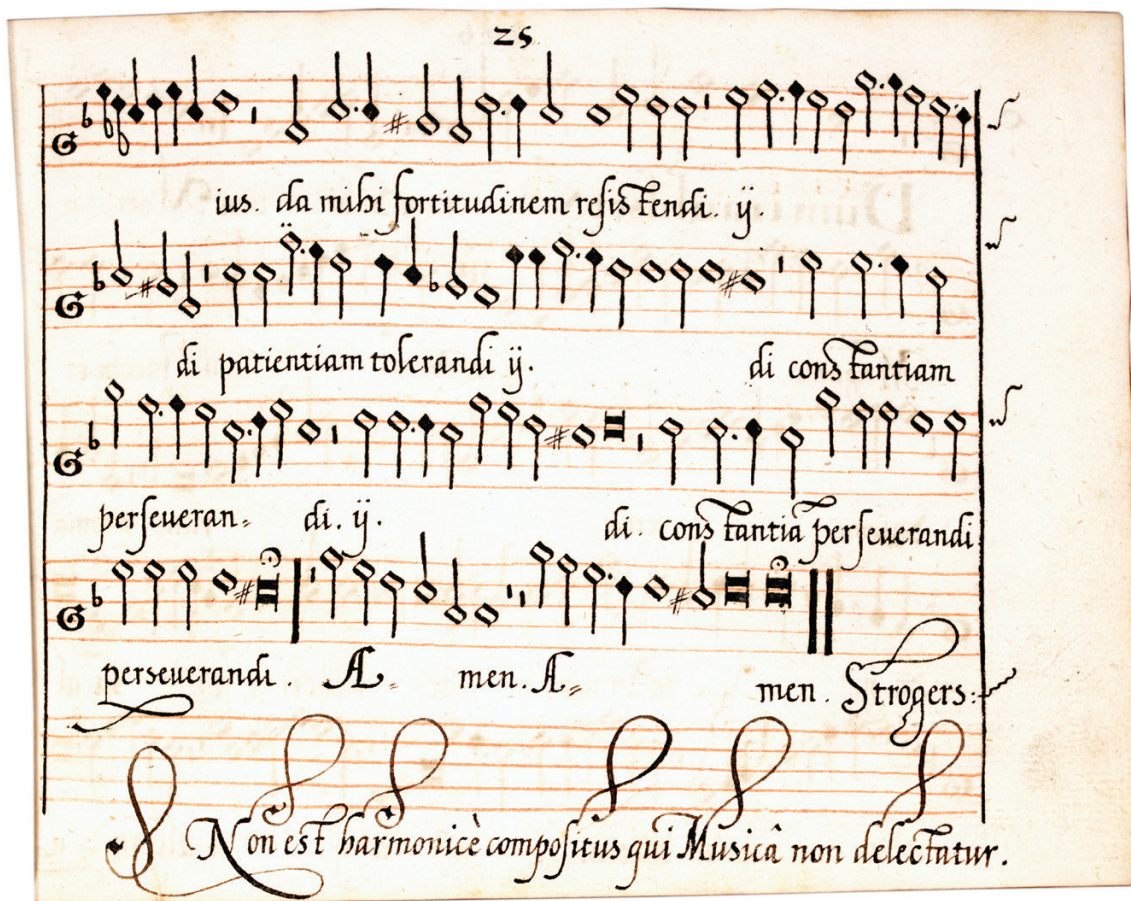 25
ius. da mihi fortitudinem resistendi. ij.
di patientiam tolerandi ij. di constantiam
perseueran= di. ij. di. constantiā perseuerandi
perseuerandi. A= men. A= men. Strogers:
Non est harmonicè compositus qui Musicâ non delectatur.